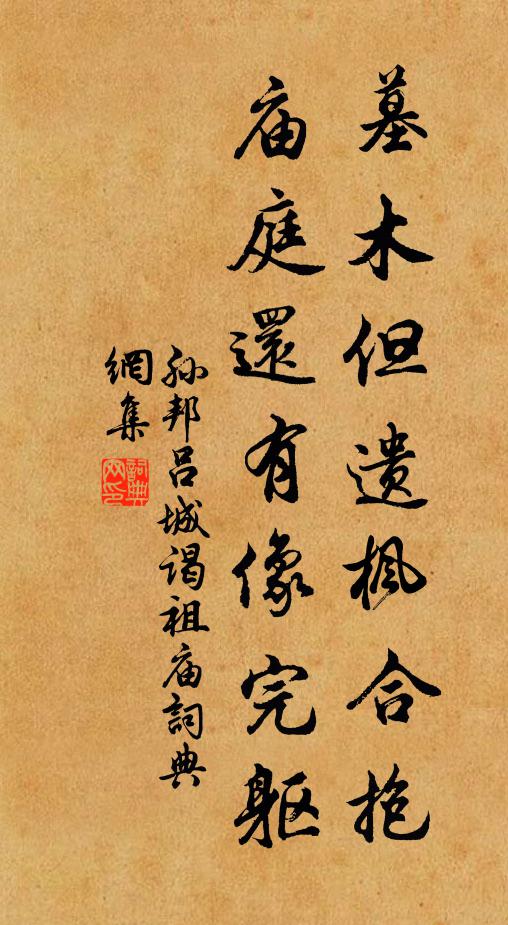 墓木但遗枫合抱
庙庭還有像完躯
孙邦吕城谒祖庙詞典
網集
詞典
网印